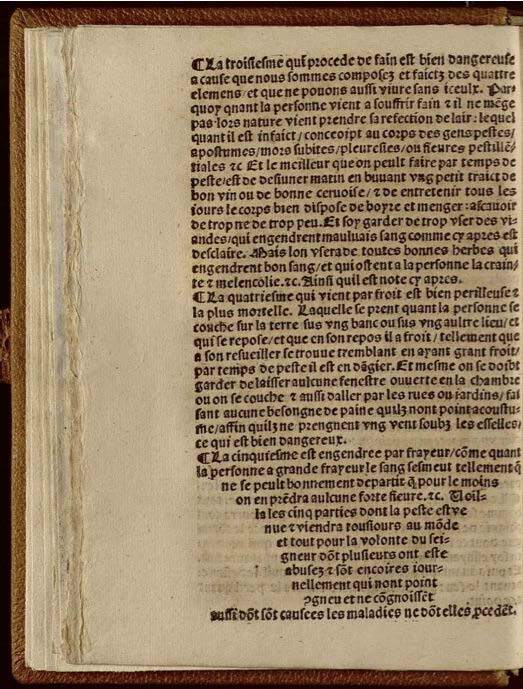 ¶La troisiesme qui procede de fain est bien dangereuse
a cause que nous sommes composez et faictz des quattre
elemens/ et que ne pouons aussi viure sans iceulx. Par-
quoy quant la personne vient a souffrir fain & il ne mẽge
pas/lors nature vient prendre sa refection de lair: lequel
quant il est infaict/ conceoipt au corps des gens pestes/
apostumes/mors subites/pleuresies/ou fieures pestillẽ-
tiales &c Et le meilleur que on peult faire par temps de
peste/est de desiuner matin en buuant vng petit traict de
bon vin ou de bonne ceruoise/& de entretenir tous les
iours le corps bien dispose de boyre et menger: ascauoir
de trop ne de trop peu. Et soy garder de trop vser des vi-
andes/qui engendrent mauluais sang comme cy apres est
desclaire. Mais lon vsera de toutes bonnes herbes qui
engendrent bon sang/et qui ostent a la personne la crain-
te & melencolie.&c. Ainsi quil est note cy apres.
¶La quatriesme qui vient par froit est bien perilleuse &
la plus mortelle. Laquelle se prent quant la personne se
couche sur la terre sus vng banc ou sus vng aultre lieu/ et
qui se repose/et que en son repos il a froit/ tellement que
a son resueiller se trouue tremblant en ayant grant froit/
par temps de peste il est en dãgier. Et mesme on se doibt
garder de laisser aulcune fenestre ouuerte en la chambre
ou on se couche & aussi daller par les rues ou iardins/ fai
sant aucune besongne de paine quilz nont point acoustu-
me/affin quilz ne prengnent vng vent soubz les esselles/
ce qui est bien dangereux.
¶La cinquiesme est engendree par frayeur/cõme quant
la personne a grande frayeur le sang sesmeut tellement q̃
ne se peult bonnement departir q̃ pour le moins
on en prẽdra aulcune forte fieure.&c. Voil-
la les cinq parties dont la peste est ve
nue & viendra tousiours au mõde
et tout pour la volonte du sei-
gneur dõt plusieurs ont este
abusez & sõt encoires iour-
nellement qui nont point
ꝯgneu et ne cõgnoissẽt
aussi dõt sõt causees les maladies ne dõt elles ꝓcedẽt.